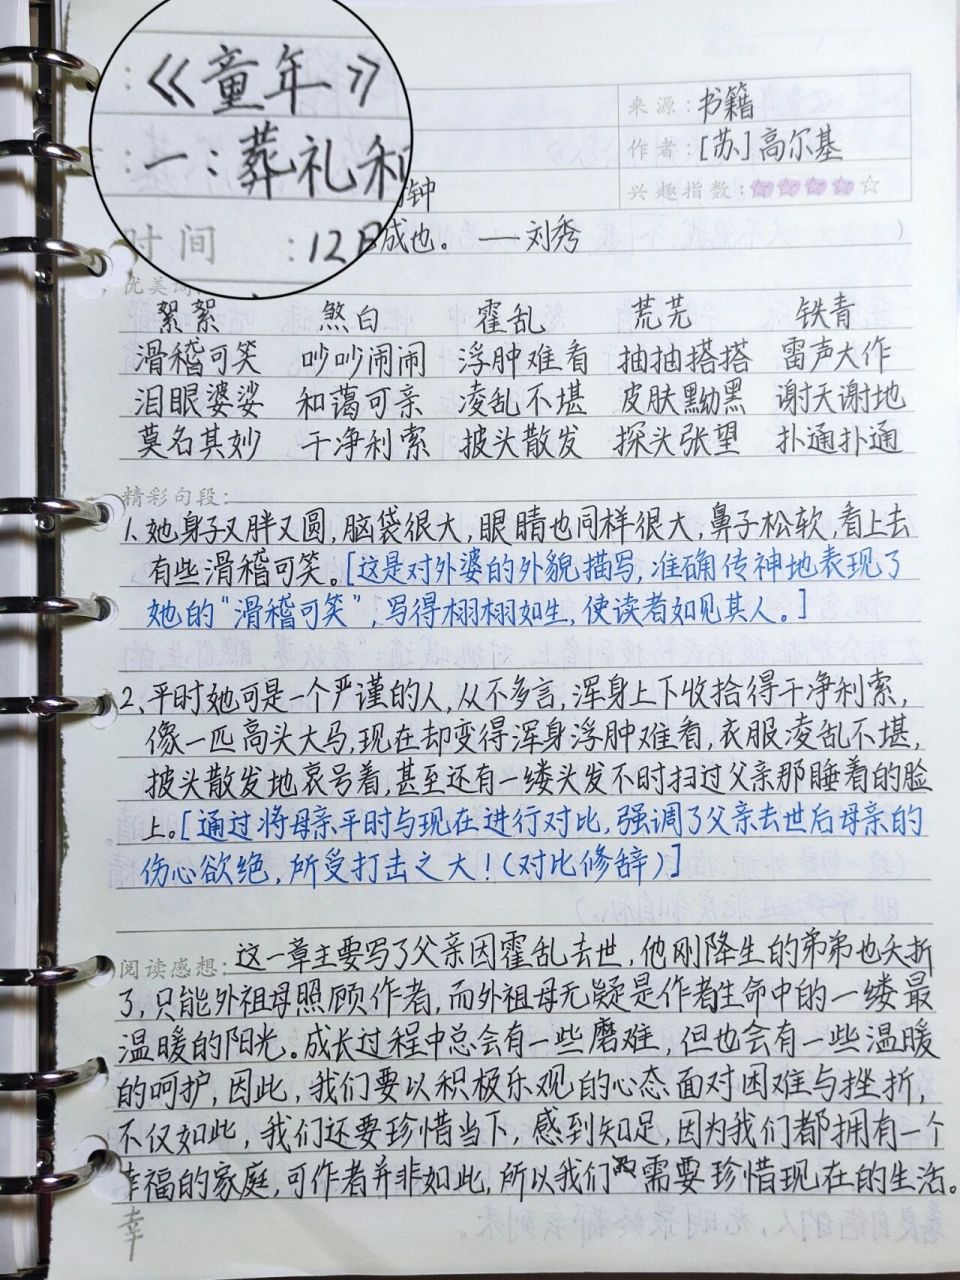 《童年》
一：葬礼和
时间：12日
来源：书籍
作者：[苏]高尔基
兴趣指数：
钟
成也。 —刘秀
絮絮 煞白 霍乱 荒芜 铁青
滑稽可笑 吵吵闹闹 浮肿难看 抽抽搭搭 雷声大作
泪眼婆娑 和蔼可亲 凌乱不堪 皮肤黝黑 谢天谢地
莫名其妙 干净利索 披头散发 探头张望 扑通扑通
精彩句段：
1、她身子又胖又圆，脑袋很大，眼睛也同样很大，鼻子松软，看上去
有些滑稽可笑。[这是对外婆的外貌描写，准确传神地表现了
她的“滑稽可笑”，写得栩栩如生，使读者如见其人。]
2、平时她可是一个严谨的人，从不多言，浑身上下收拾得干净利索，
像一匹高头大马，现在却变得浑身浮肿难看，衣服凌乱不堪，
披头散发地哀号着，甚至还有一缕头发不时扫过父亲那睡着的脸
上。[通过将母亲平时与现在进行对比，强调了父亲去世后母亲的
伤心欲绝，所受打击之大！(对比修辞)]
阅读感想：这一章主要写了父亲因霍乱去世，他刚降生的弟弟也夭折
了，只能外祖母照顾作者，而外祖母无疑是作者生命中的一缕最
温暖的阳光。成长过程中总会有一些磨难，但也会有一些温暖
的呵护，因此，我们要以积极乐观的心态面对困难与挫折，
不仅如此，我们还要珍惜当下，感到知足，因为我们都拥有一个
幸福的家庭，可作者并非如此，所以我们需要珍惜现在的生活。
幸